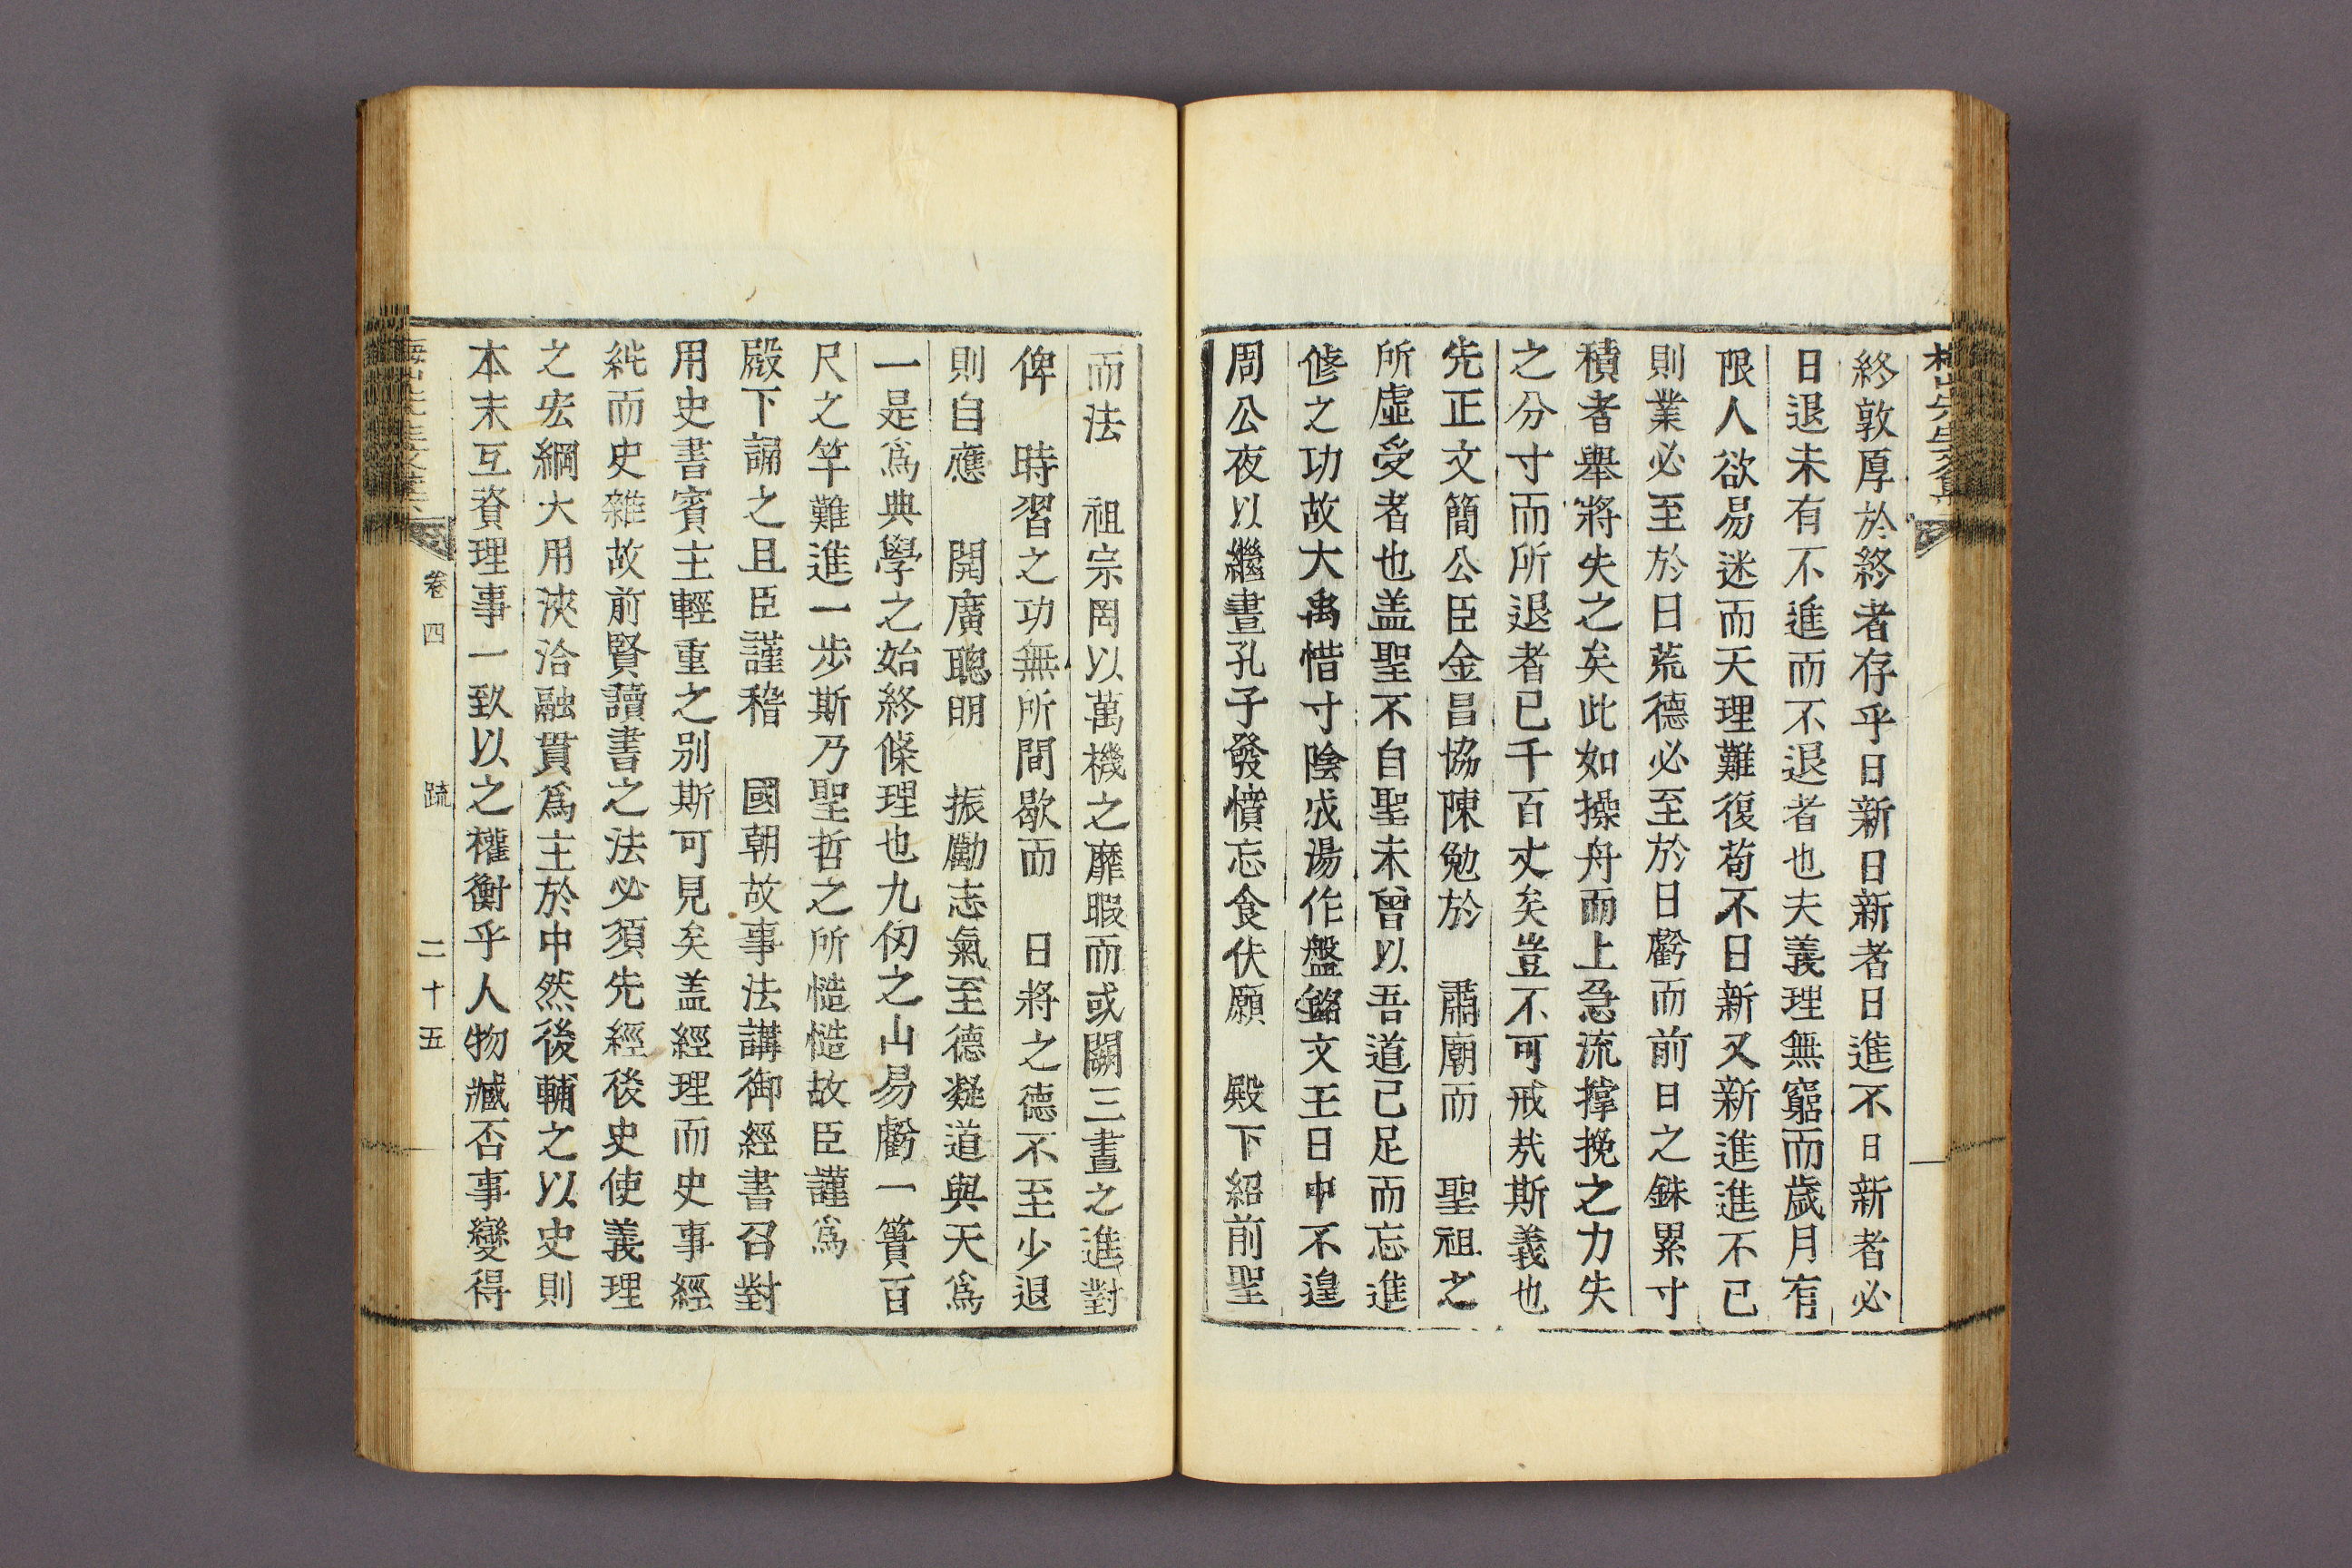 終敦厚於終者存乎日新日新者日進不日新者必
日退未有不進而不退者也夫義理無窮而歲月有
限人欲易迷而天理難復苟不日新又新進進不已
則業必至於日荒德必至於日虧而前日之銖累寸
積者舉將失之矣此如操舟而上急流撑挽之力失
之分寸而所退者已千百丈矣豈不可戒㢤斯義也
先正文簡公臣金昌協陳勉於 肅廟而 聖祖之
所虛受者也盖聖不自聖未曾以吾道已足而忘進
修之功故大禹惜寸陰成湯作盤銘文王日中不遑
周公夜以繼晝孔子發憤忘食伏願 殿下紹前聖
而法 祖宗罔以萬機之靡暇而或闕三晝之進對
俾 時習之功無所間歇而 日將之德不至少退
則自應 開廣聰明 振勵志氣至德凝道與天爲
一是爲典學之始終條理也九仞之山易虧一簣百
尺之竿難進一步斯乃聖哲之所慥慥故臣謹爲
殿下誦之且臣謹稽 國朝故事法講御經書召對
用史書賓主輕重之别斯可見矣盖經理而史事經
純而史雜故前賢讀書之法必須先經後史使義理
之宏綱大用浹洽融貫爲主於中然後輔之以史則
本末互資理事一致以之權衡乎人物臧否事變得
卷四 疏 二十五